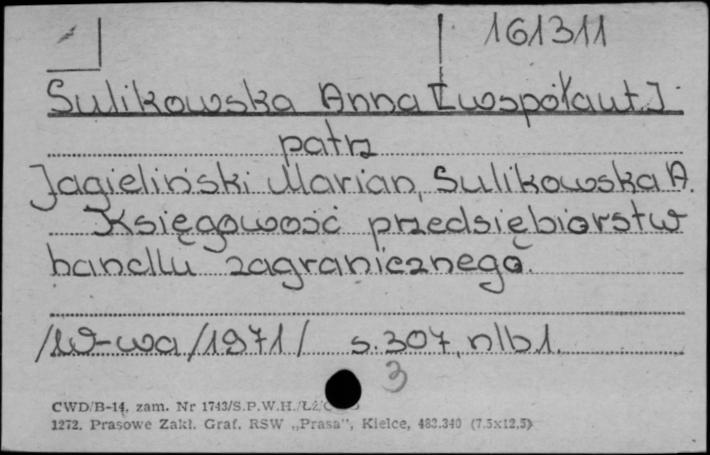 161311
Sulikowska Anna [współaut.]
patrz
Jagieliński Marian, Sulikowska A.
Księgowość przedsiębiorstw
handlu zagranicznego.
/W-wa/1971/ s. 307, nlb 1.
3
CWD/B-14, zam. Nr 1743/S.P.W.H./Łż/
1272. Prasowe Zakł. Graf. RSW „Prasa”, Kielce, 483.340 (7.5x12,5)